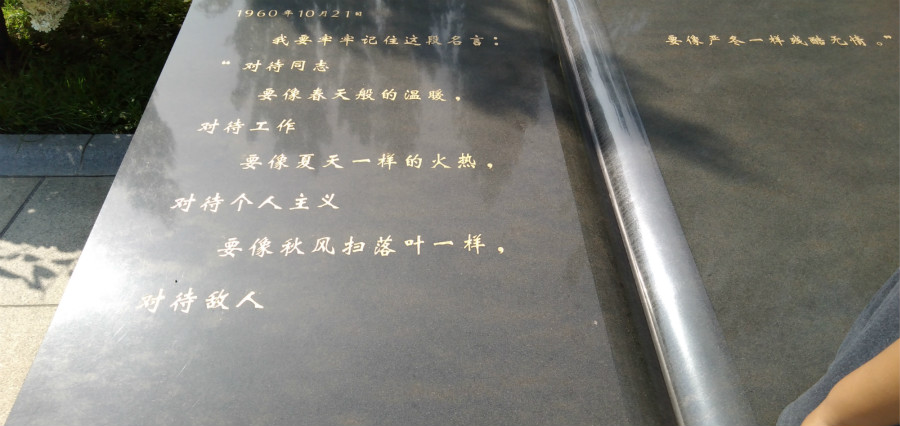 1960年10月21日
我要牢牢记住这段名言：
“对待同志
要像春天般的温暖，
对待工作
要像夏天一样的火热，
对待个人主义
要像秋风扫落叶一样，
对待敌人
要像严冬一样残酷无情。”